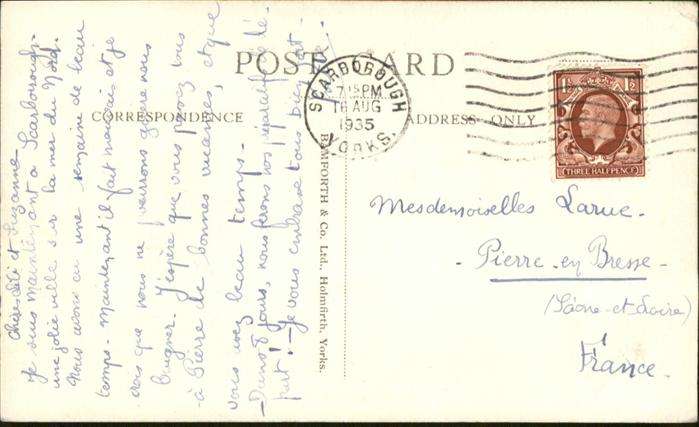 POST CARD
CORRESPONDENCE
ADDRESS ONLY
SCARBOROUGH
7 15 PM
16 AUG
1935
YORKS.
1½
1½
THREE HALFPENCE
BAMFORTH & Co. Ltd., Holmfirth, Yorks.
Chères Lili et Suzanne
Je suis maintenant à Scarborough.
une jolie ville sur la mer du Nord.
Nous avons eu une semaine de beau
temps. Maintenant il fait mauvais et je
crois que nous ne pourrons guère nous
baigner. J'espère que vous passez tous
à Pierre de bonnes vacances, et que
vous avez beau temps.
- Dans 8 jours, nous ferons nos dé-
part! - Je vous embrasse tous bien fort.
Mesdemoiselles Laruc.
- Pierre-en-Bresse -
(Saône-et-Loire)
France.